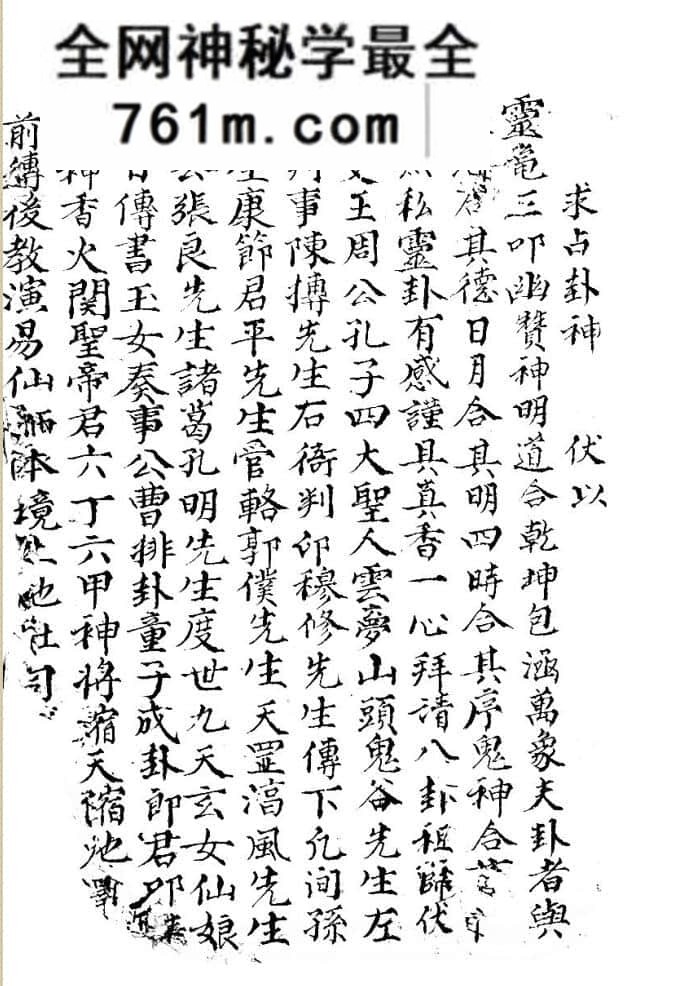 全网神秘学最全
761m.com
求占卦神 伏以
靈龜三叩幽贊神明道合乾坤包涵萬象夫卦者與
其德日月合其明四時合其序鬼神合
私靈卦有感謹具真香一心拜請八卦祖師伏
王周公孔子四大聖人雲夢山頭鬼谷先生左
事陳摶先生右衙判卯穆修先生傳下九洵孫
康節君平先生管輅郭僕先生天罡淳風先生
張良先生諸葛孔明先生度世九天玄女仙娘
傳書玉女奏事公曹排卦童子成卦郎君
神香火関聖帝君六丁六甲神將縮天縮地
前傳後教演易仙師本境土地社司